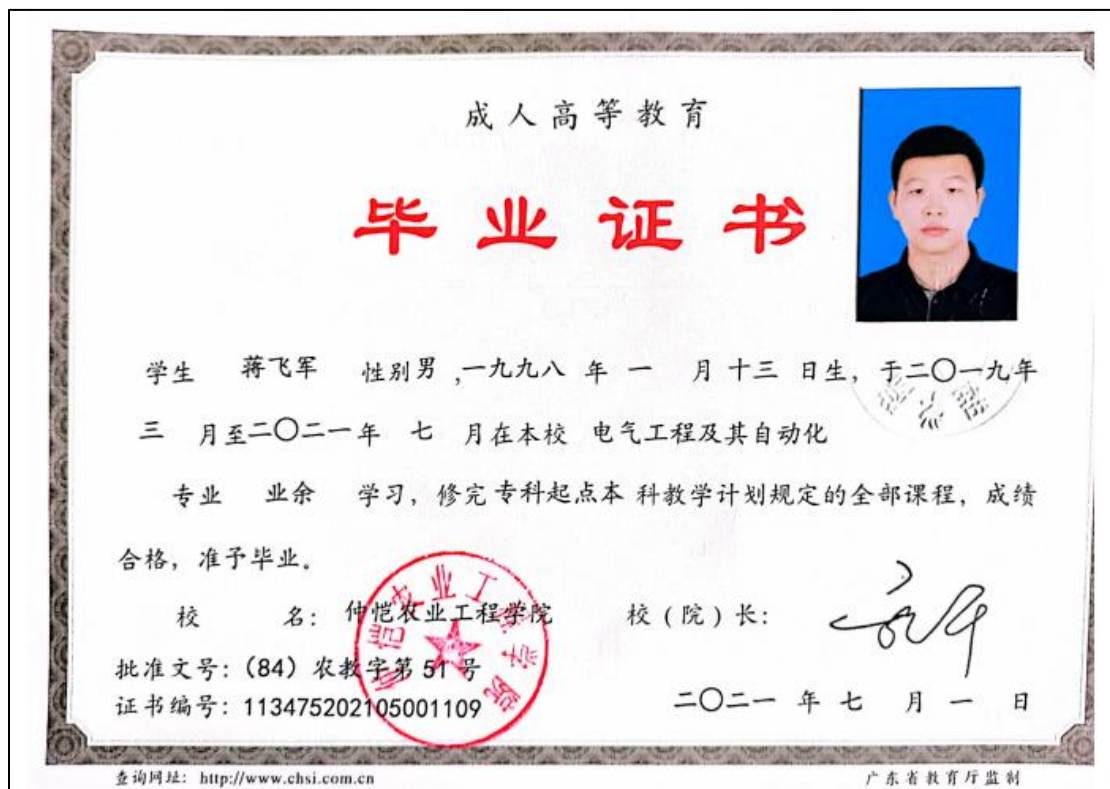 成人高等教育
毕业证书
学生 蒋飞军 性别男,一九九八 年 一 月十三 日生,于二〇一九年
三 月至二〇二一年 七 月在本校 电气工程及其自动化
专业 业余 学习,修完专科起点本 科教学计划规定的全部课程,成绩
合格,准予毕业。
校 名:仲恺农业工程学院 校(院)长:
批准文号:(84)农教字第 51 号
证书编号:113475202105001109
二〇二一 年 七 月 一 日
仲恺农业工程学院
查询网址:http://www.chsi.com.cn
广东省教育厅监制